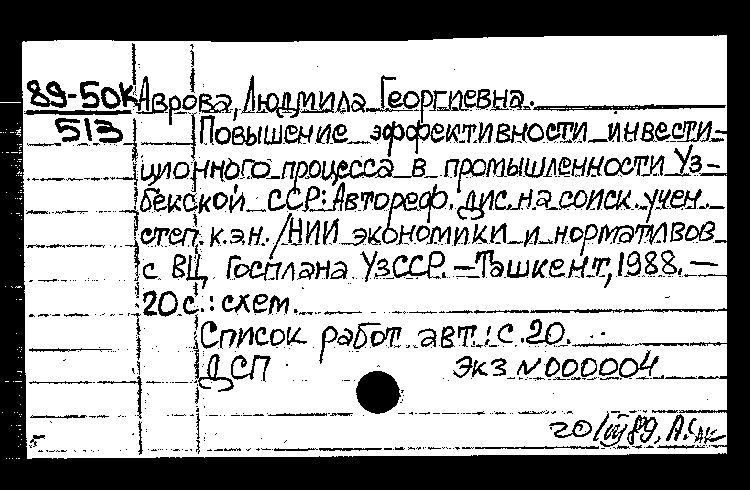 89-50К Аврова, Людмила Георгиевна.
513 Повышение эффективности инвести-
ционного процесса в промышленности Уз-
бекской ССР: Автореф. дис. на соиск. учен.
степ. к.э.н. /НИИ экономики и нормативов
с ВЦ Госплана УзССР. — Ташкент, 1988. —
20 с.: схем.
Список работ авт.: с. 20.
ДСП Экз N 000004
20/VII 89,